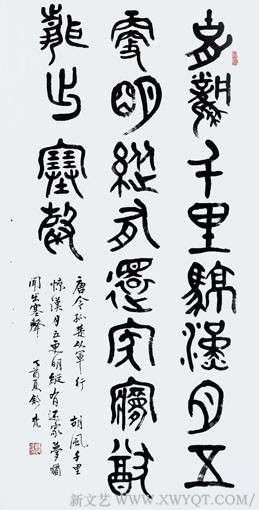 胡風千里驚漢月五
更明縱有還家夢猶
聞出塞聲
唐令狐楚从軍行 胡風千里
惊漢月五更明縱有还家夢猶
聞出塞聲 丁酉夏
新文艺 WWW.XWYQT.COM